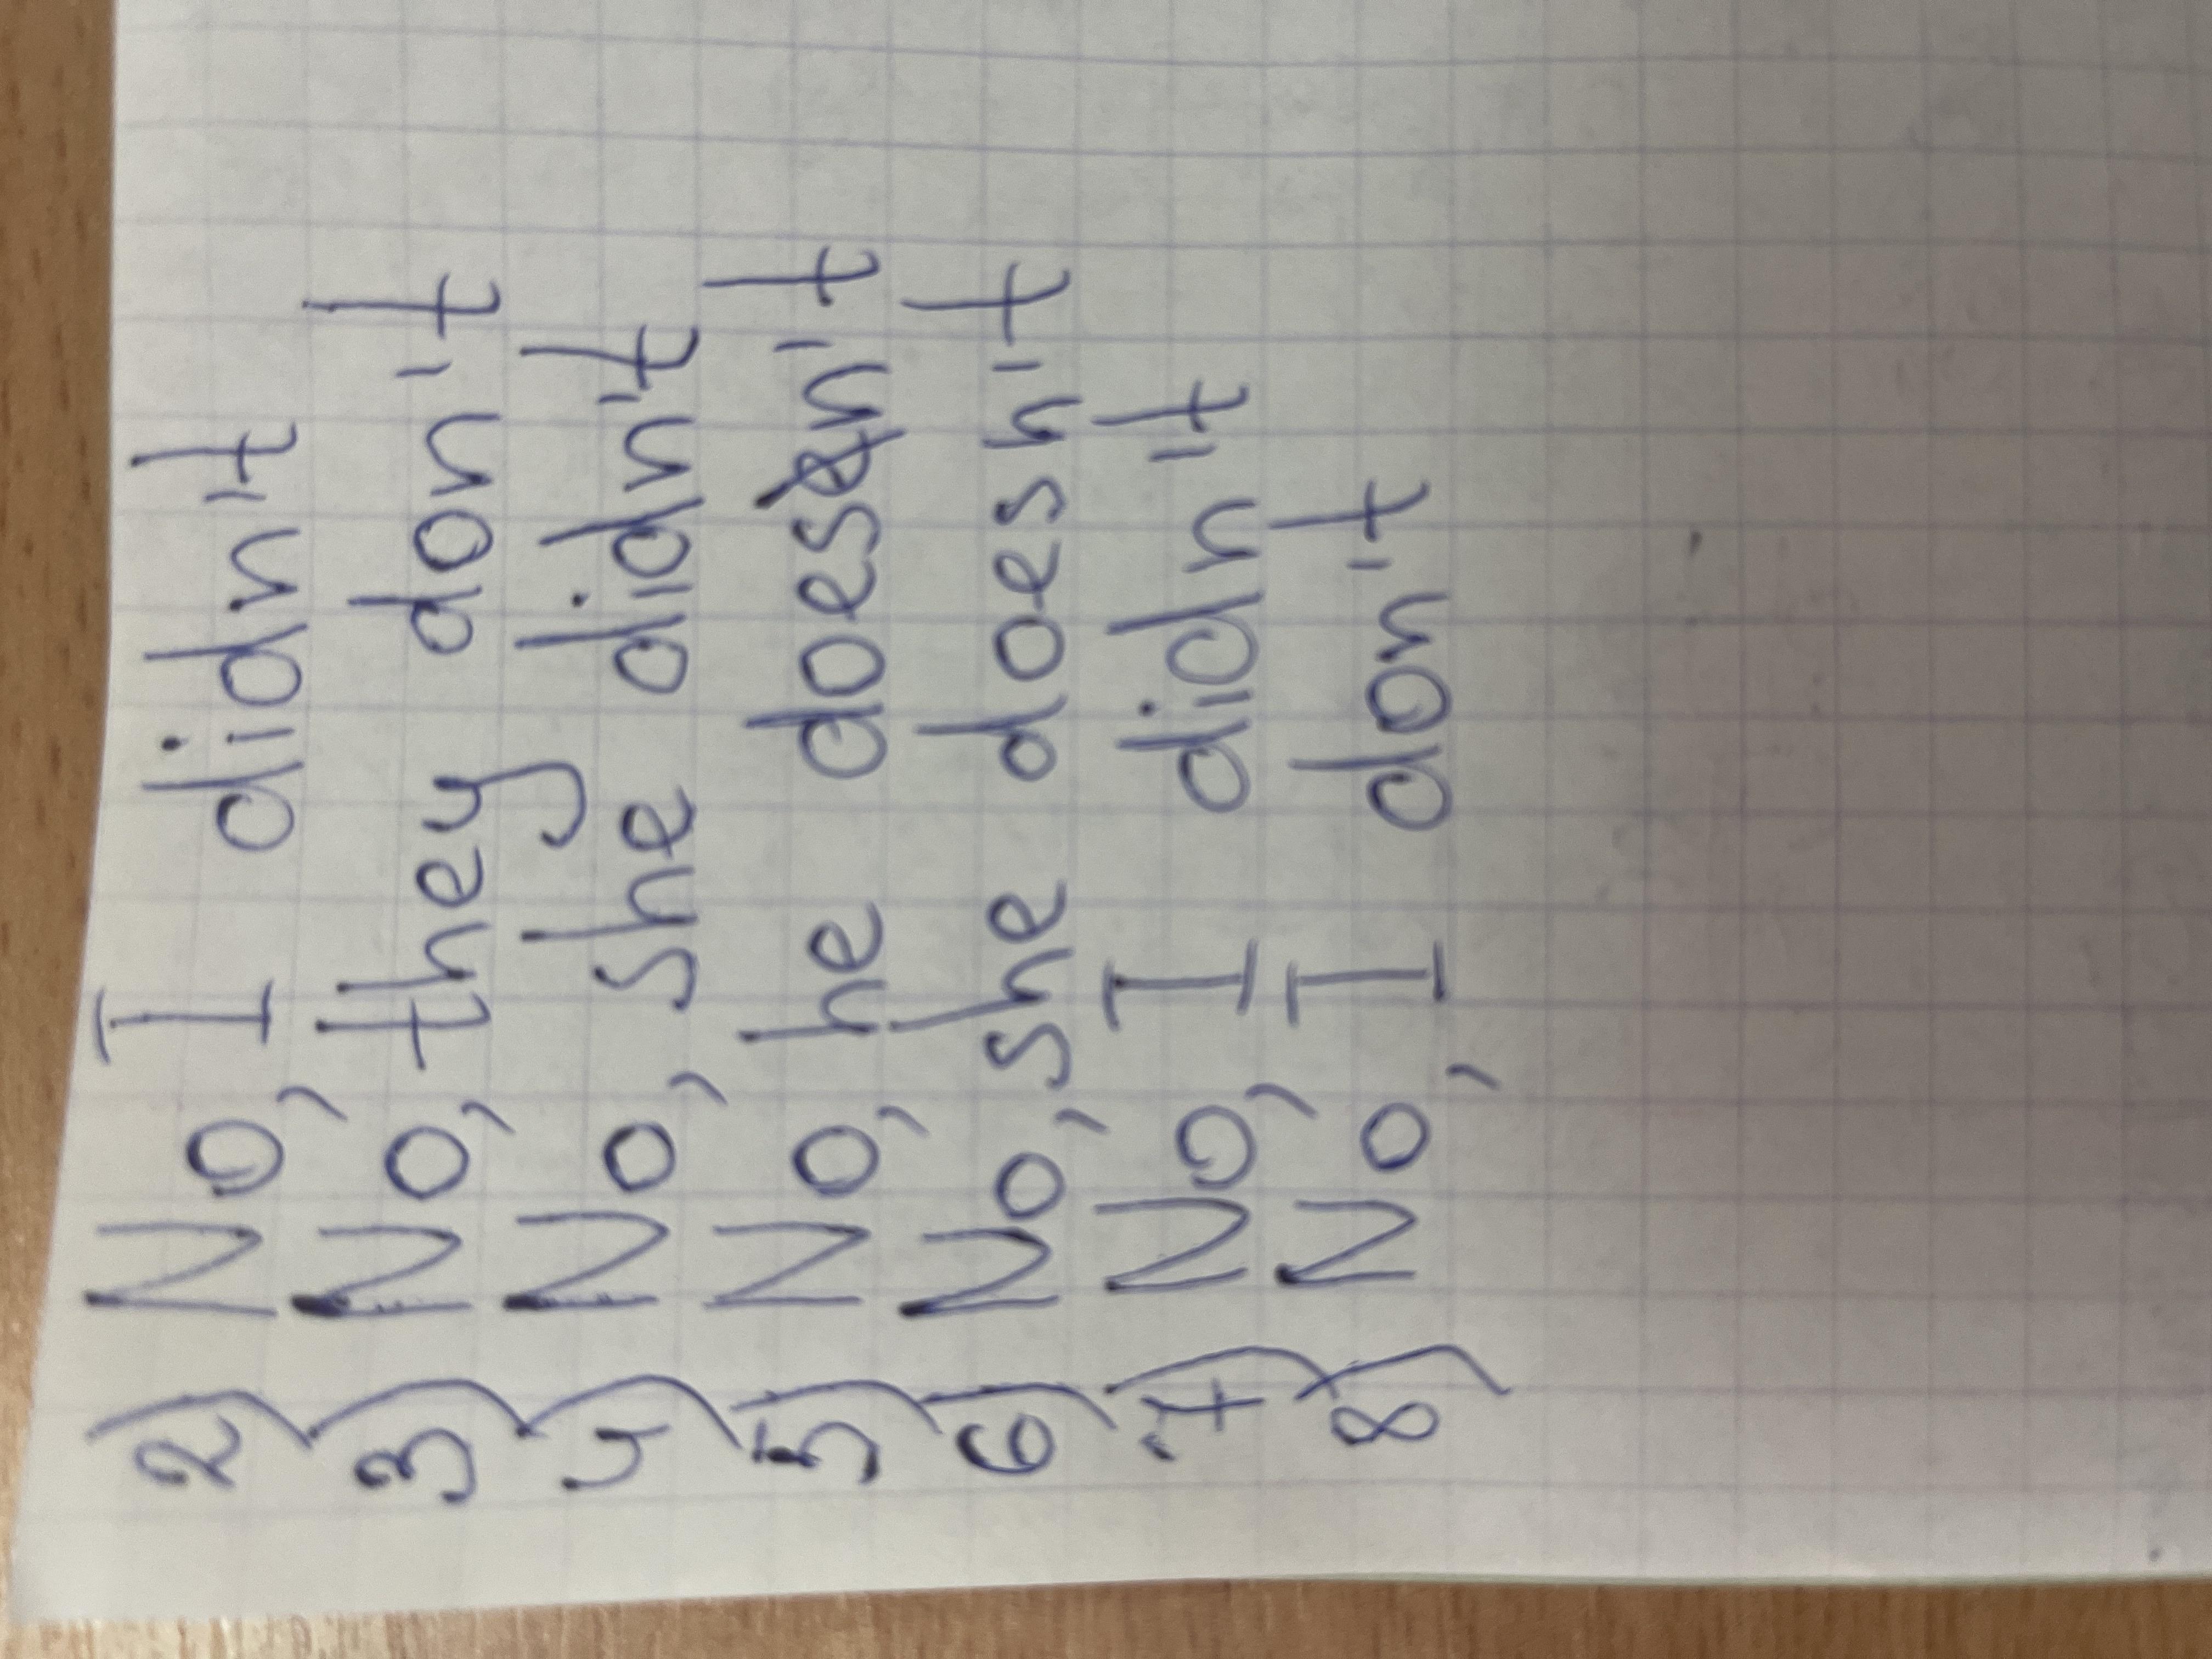 2) No, I didn't
3) No, they don't
4) No, she didn't
5) No, he doesn't
6) No, she doesn't
7) No, I didn't
8) No, I don't